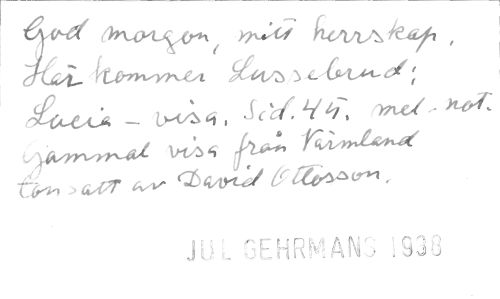 God morgon, mitt herrskap,
Här kommer Lussebrud;
Lucia - visa. Sid. 45. mel. not.
Gammal visa från Värmland
tonsatt av David Ottosson.
JUL GEHRMANS 1938